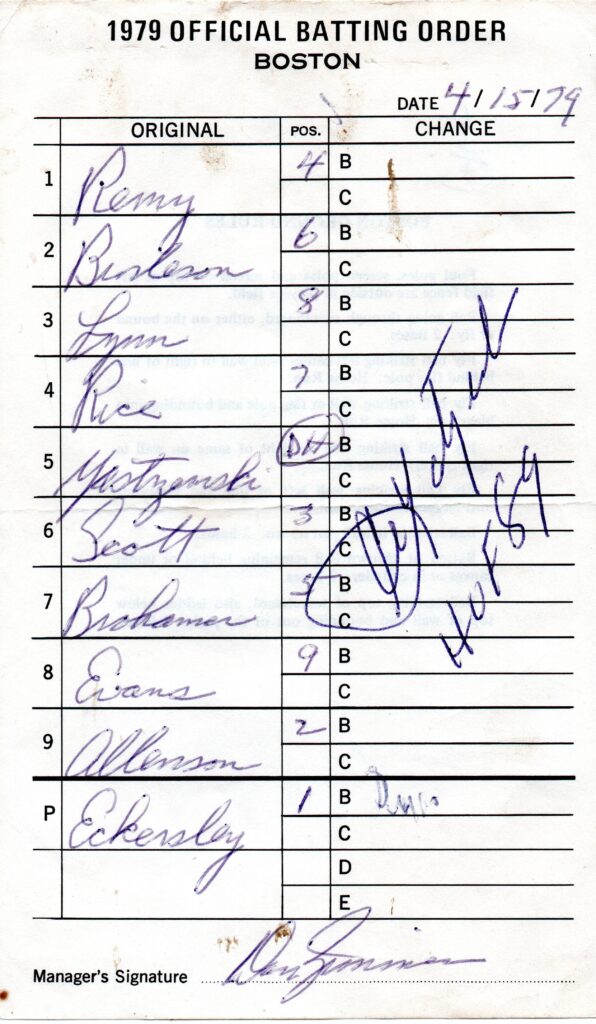 1979 OFFICIAL BATTING ORDER
BOSTON
DATE 4/15/79
ORIGINAL POS. CHANGE
1 Remy 4 B
C
2 Burleson 6 B
C
3 Lynn 8 B
C
4 Rice 7 B
C
5 Yastrzemski DH B
C
6 Scott 3 B
C
7 Brohamer 5 B
C
HOF 89
8 Evans 9 B
C
9 Allenson 2 B
C
P Eckersley 1 B
C
D
E
Manager's Signature Don Zimmer